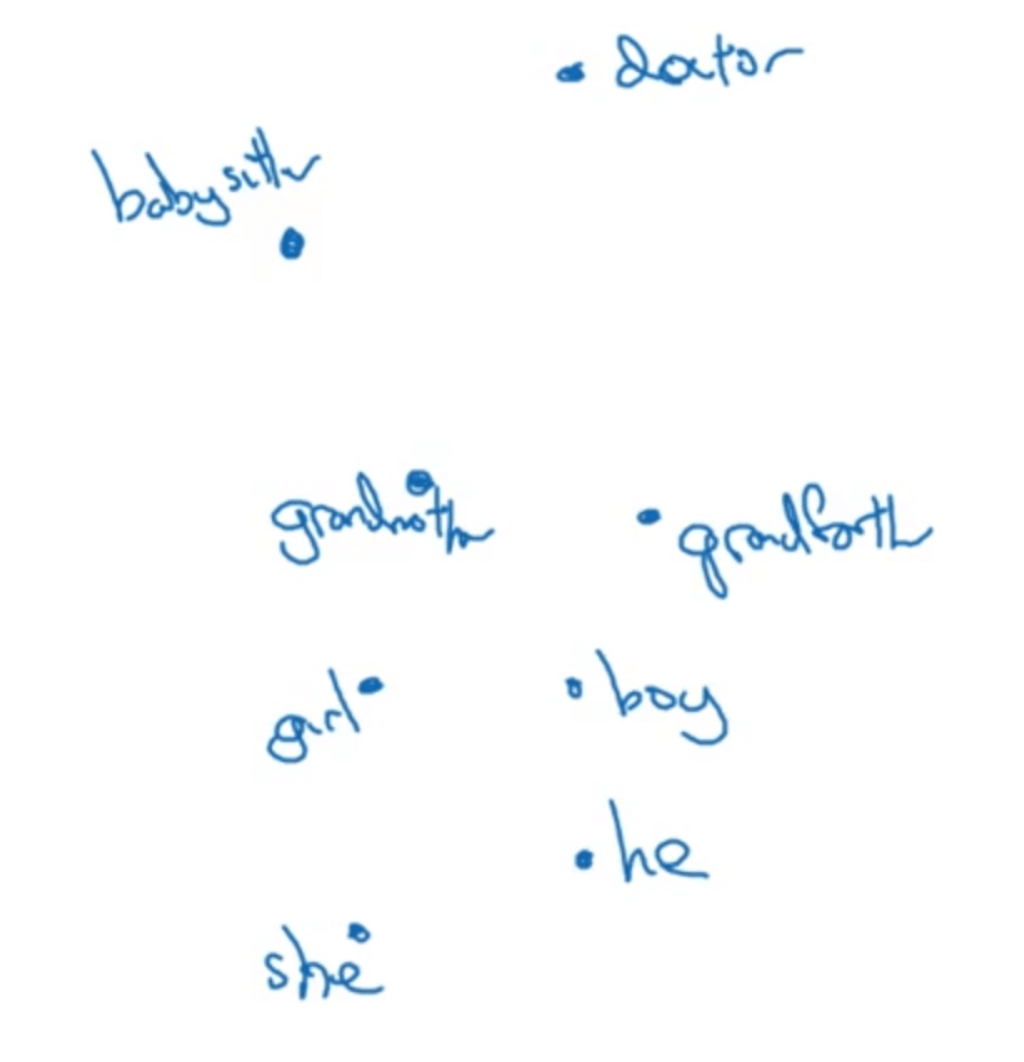 doctor
babysitter
grandmother
grandfather
girl
boy
he
she